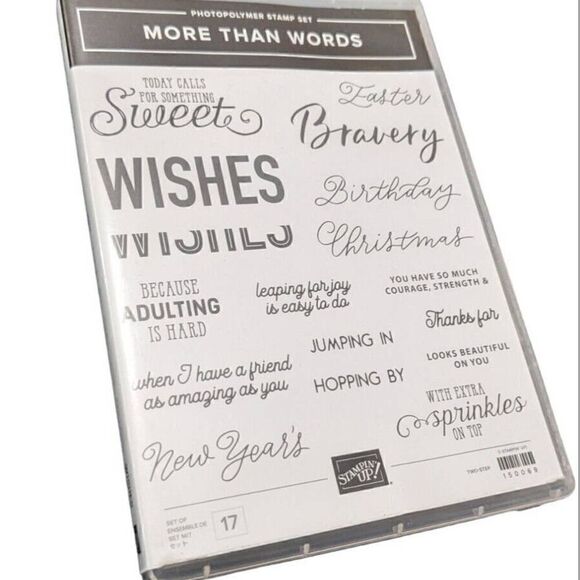 PHOTOPOLYMER STAMP SET
MORE THAN WORDS
TODAY CALLS
FOR SOMETHING
Sweet
Easter
Bravery
WISHES
Birthday
WISHES
Christmas
BECAUSE
ADULTING
IS HARD
leaping for joy
is easy to do
YOU HAVE SO MUCH
COURAGE, STRENGTH &
Thanks for
JUMPING IN
HOPPING BY
LOOKS BEAUTIFUL
ON YOU
when I have a friend
as amazing as you
WITH EXTRA
sprinkles
ON TOP
New Year's
STAMPIN' UP!
TWO-STEP
150069
SET OF
ENSEMBLE DE
SET MIT
セット
17